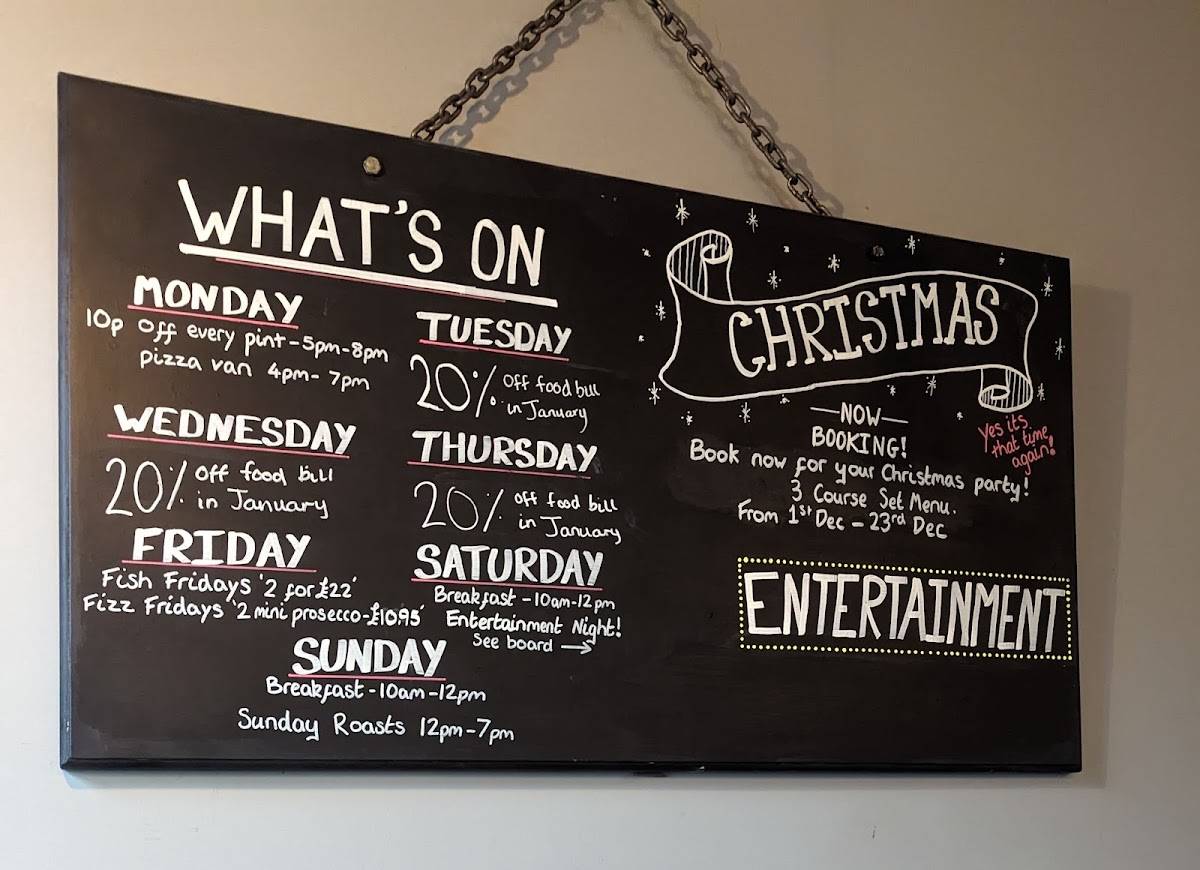 WHAT'S ON
MONDAY
10p off every pint - 5pm-8pm
pizza van 4pm - 7pm
TUESDAY
20% off food bill
in January
WEDNESDAY
20% off food bill
in January
THURSDAY
20% off food bill
in January
FRIDAY
Fish Fridays '2 for £22'
Fizz Fridays '2 mini prosecco-£10.95'
SATURDAY
Breakfast - 10am-12pm
Entertainment Night!
See board →
SUNDAY
Breakfast - 10am-12pm
Sunday Roasts 12pm-7pm
CHRISTMAS
Yes its
that time
again!
—NOW—
BOOKING!
Book now for your Christmas party!
3 Course Set Menu.
From 1st Dec - 23rd Dec
ENTERTAINMENT